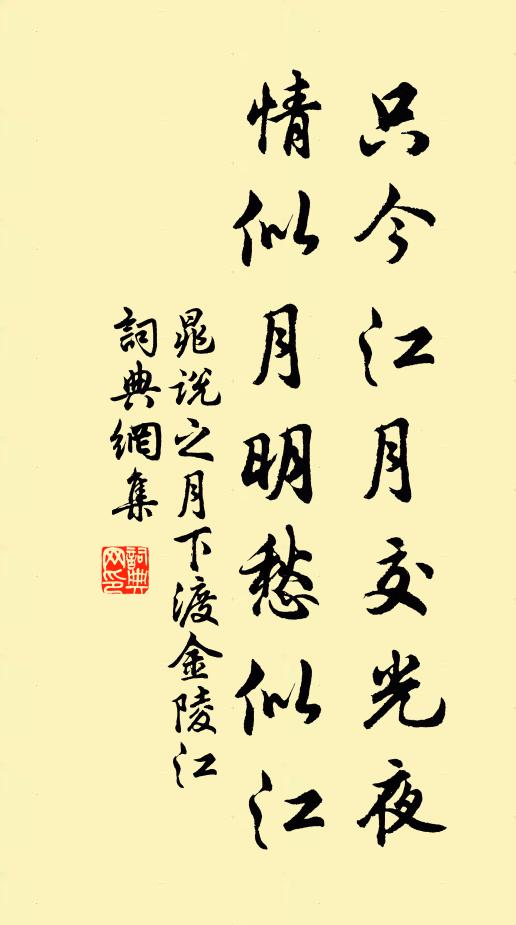 只今江月交光夜
情似月明愁似江
晁说之月下渡金陵江
詞典網集
詞典网印